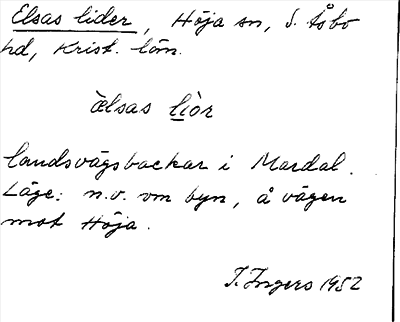 Elsas lider, Höja sn, S. Åsbo
hd, Krist. län.
ælsas lìɔr
landsvägsbackar i Mardal.
Läge: n.v. om byn, å vägen
mot Höja.
I. Ingers 1952